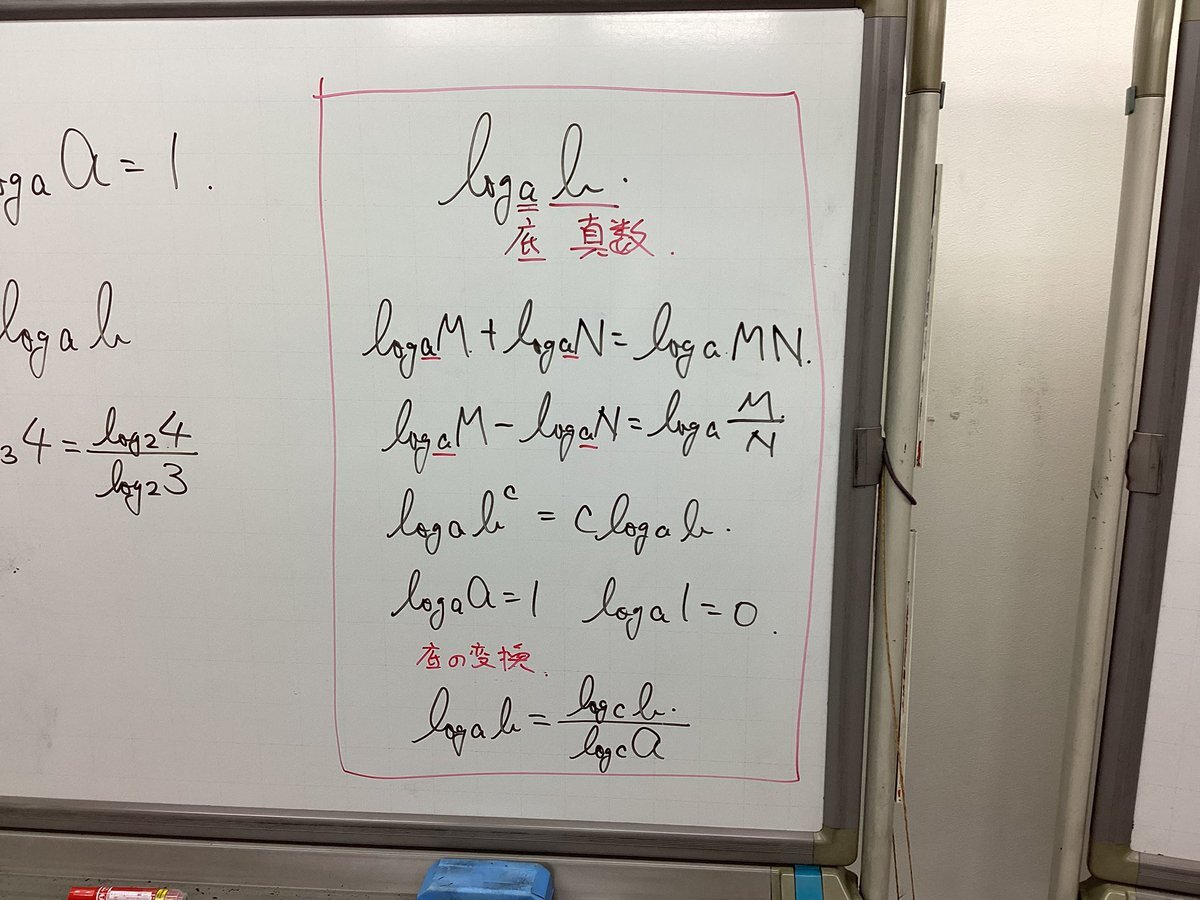 log_a a = 1.
log_a b
₃4 = log₂4 / log₂3
log_a b.
底 真数.
log_a M + log_a N = log_a MN.
log_a M - log_a N = log_a M/N
log_a b^c = c log_a b.
log_a a = 1 log_a 1 = 0.
底の変換
log_a b = log_c b / log_c a